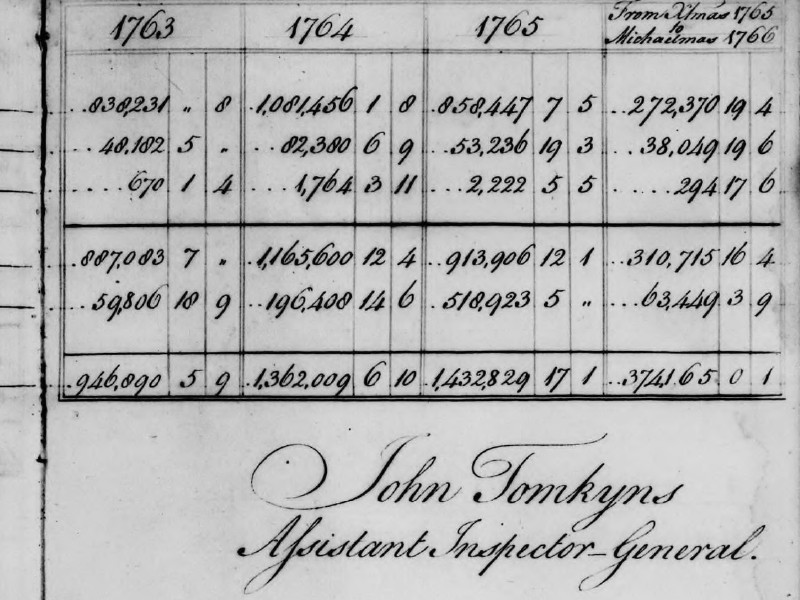 1763 1764 1765 From Xtmas 1765
to
Michaelmas 1766
..838,231 " 8 .1,081,456 1 8 .858,447 7 5 ..272,370 19 4
..48,182 5 " ..82,380 6 9 ..53,236 19 3 ..38,049 19 6
....670 1 4 ...1,764 3 11 ...2,222 5 5 .....294 17 6
.887,083 7 " .1,165,600 12 4 ..913,906 12 1 ..310,715 16 4
...59,806 18 9 ..196,408 14 6 ..518,923 5 " ...63,449 3 9
.946,890 5 9 .1,362,009 6 10 1,432,829 17 1 ..374,165 0 1
John Tomkyns
Aſsistant Inspector-General.